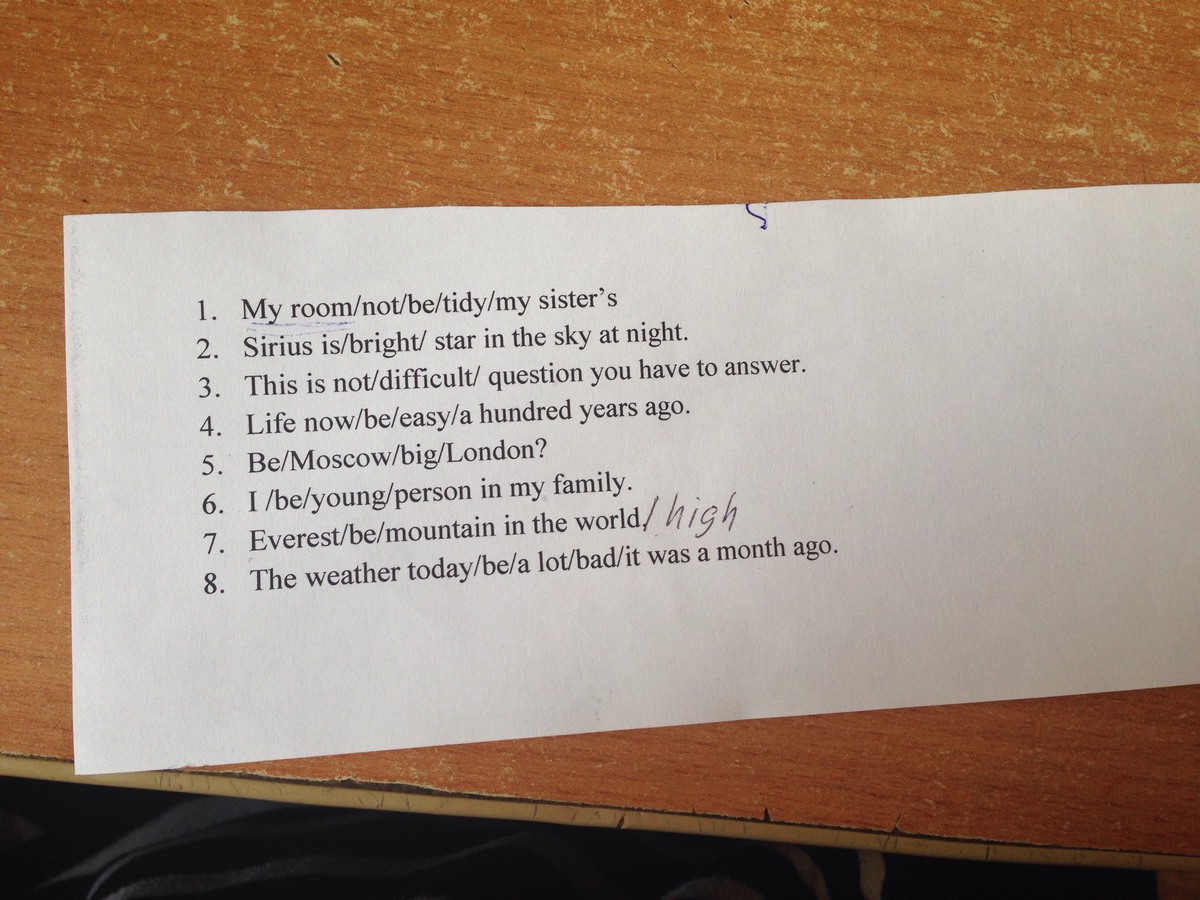 1. My room/not/be/tidy/my sister's
2. Sirius is/bright/ star in the sky at night.
3. This is not/difficult/ question you have to answer.
4. Life now/be/easy/a hundred years ago.
5. Be/Moscow/big/London?
6. I /be/young/person in my family.
7. Everest/be/mountain in the world./ high
8. The weather today/be/a lot/bad/it was a month ago.